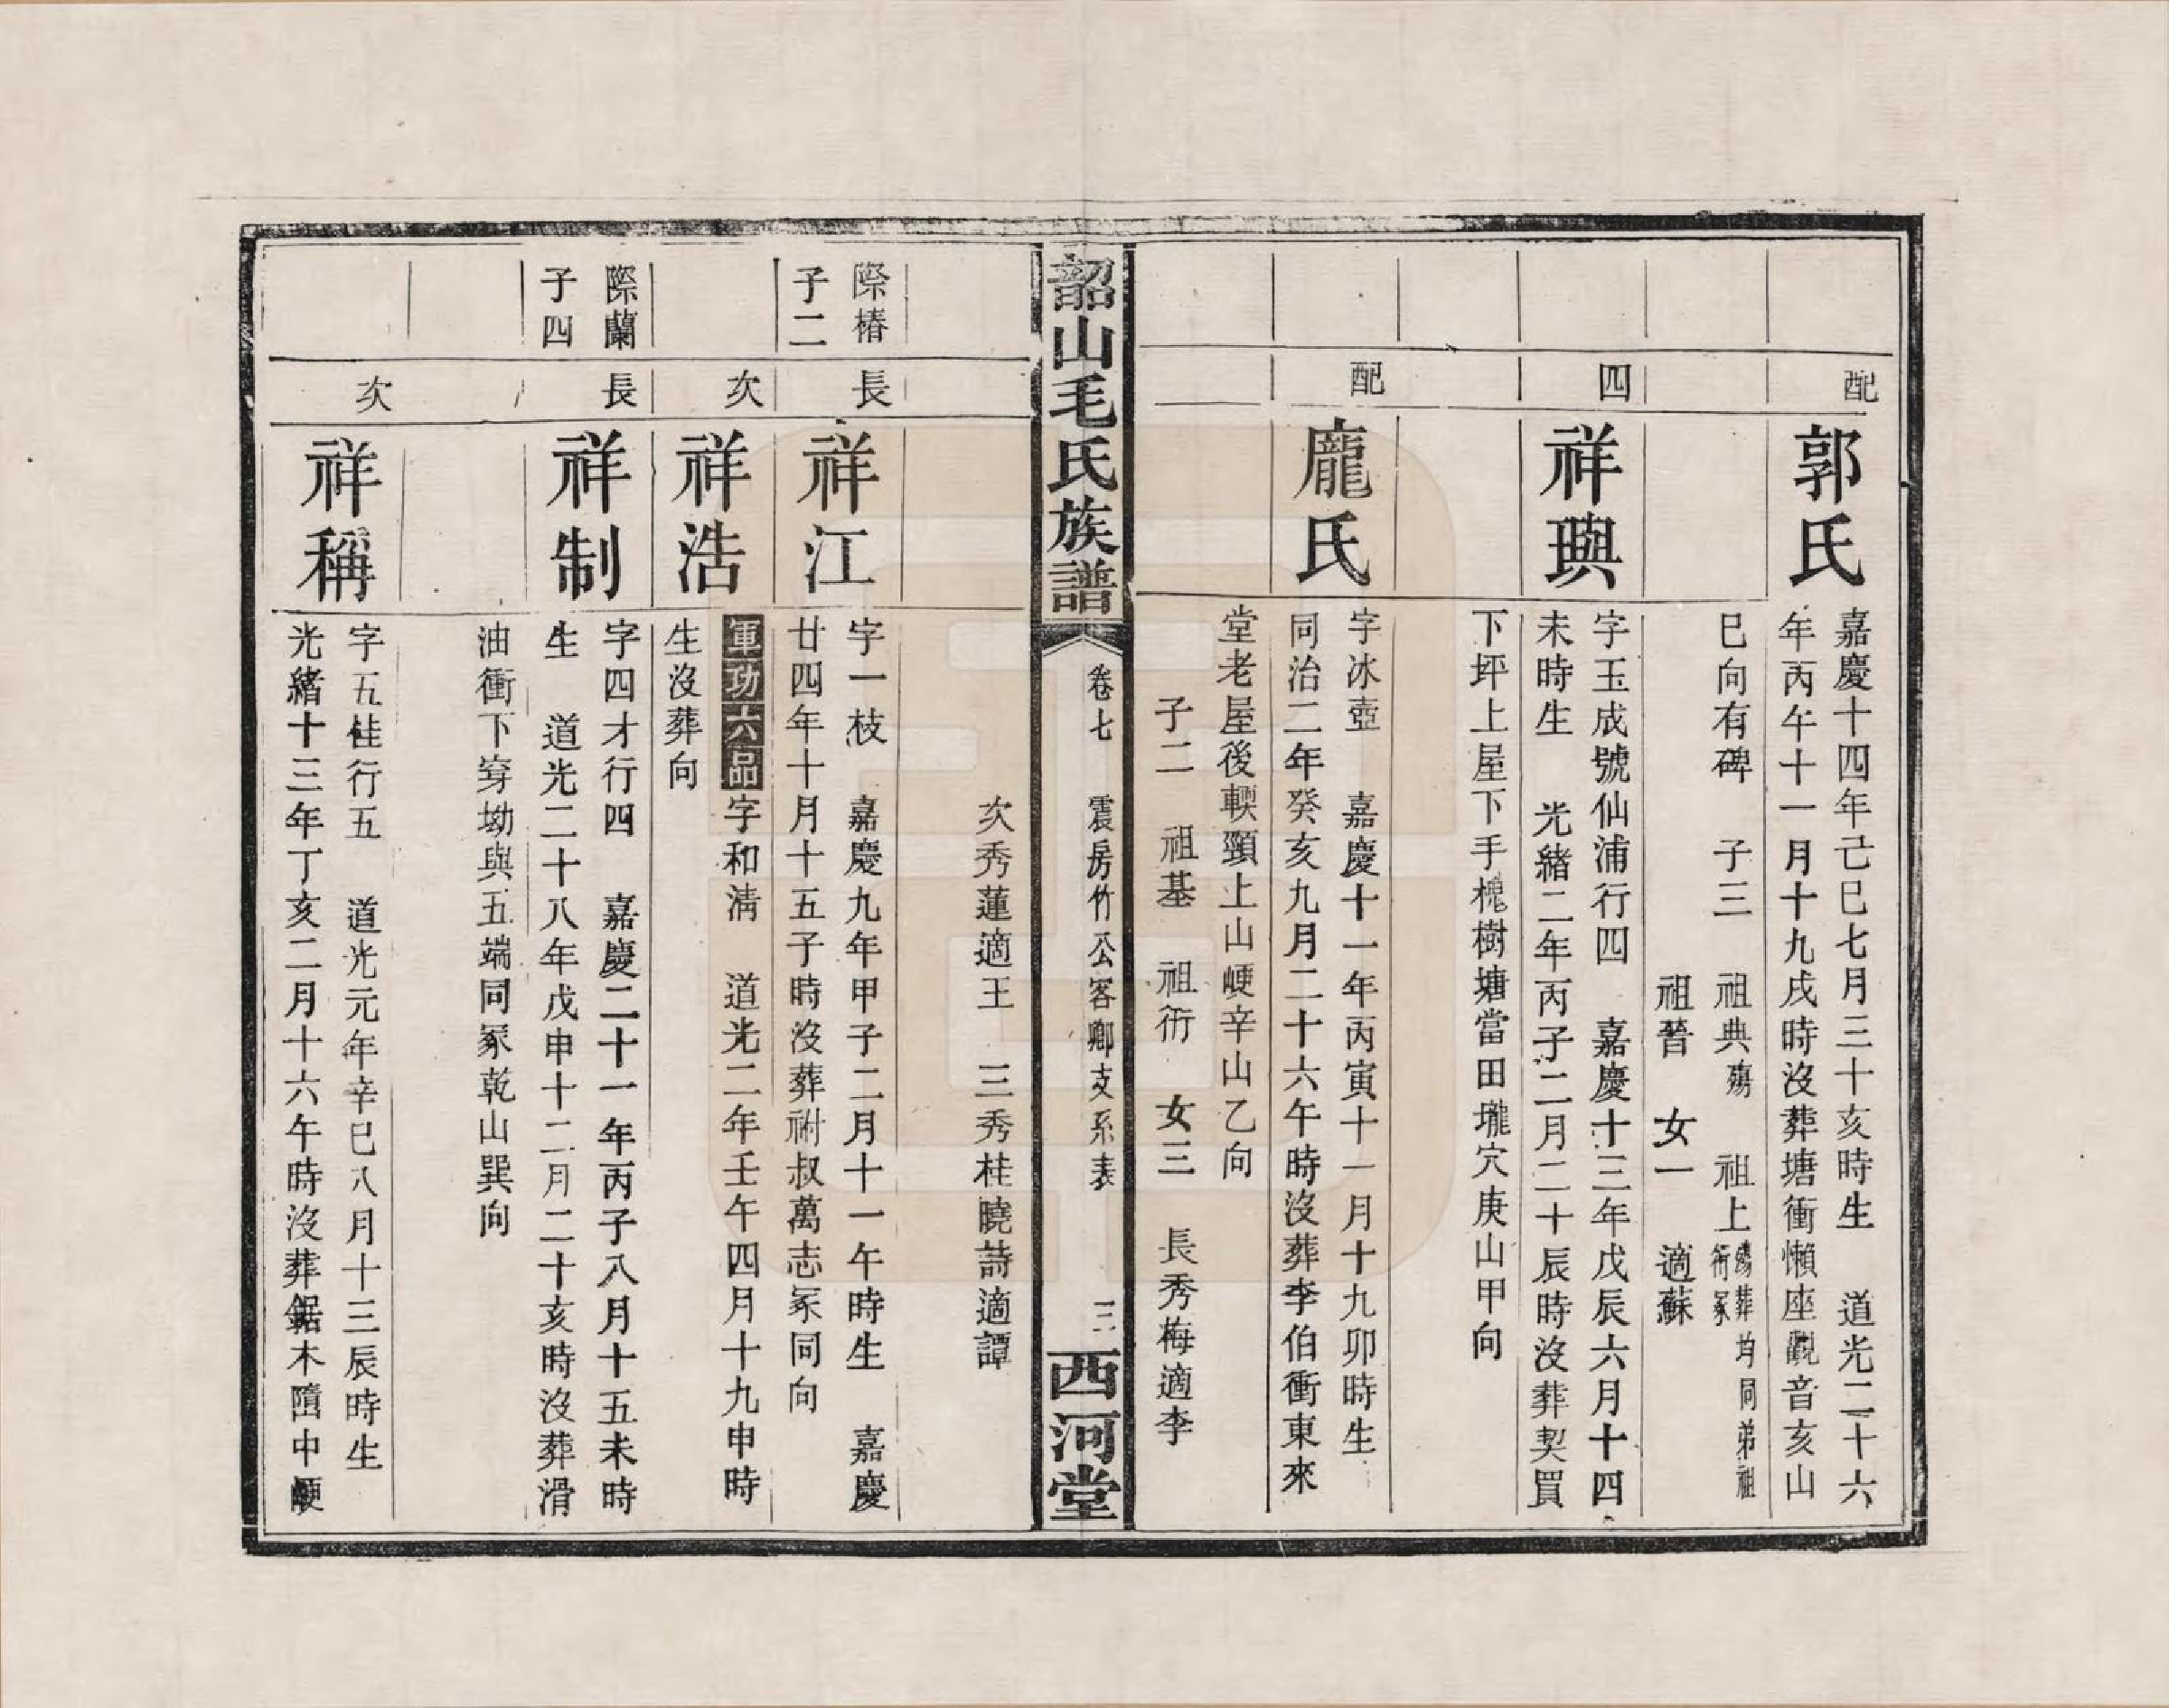 配
郭氏
嘉慶十四年己巳七月三十亥時生　道光二十六
年丙午十一月十九戌時沒葬塘衝懶座觀音亥山
巳向有碑　子三　祖典殤　祖上殤葬均同弟祖
衖冢
祖晉　女一　適蘇
四
祥璵
字玉成號仙浦行四　嘉慶十三年戊辰六月十四
未時生　光緒二年丙子二月二十辰時沒葬契買
下坪上屋下手槐樹塘當田壠穴庚山甲向
配
龐氏
字冰壺　嘉慶十一年丙寅十一月十九卯時生
同治二年癸亥九月二十六午時沒葬李伯衝東來
堂老屋後軫頸上山㟍辛山乙向
子二　祖基　祖衖　女三　長秀梅適李
韶山毛氏族譜
卷七　震房竹公客鄉支系表
三
西河堂
次秀蓮適王　三秀桂曉詩適譚
際椿
子二
長
祥江
字一枝　嘉慶九年甲子二月十一午時生　嘉慶
廿四年十月十五子時沒葬祔叔萬志冢同向
次
祥浩
軍功六品字和淸　道光二年壬午四月十九申時
生沒葬向
際蘭
子四
長
祥制
字四才行四　嘉慶二十一年丙子八月十五未時
生　道光二十八年戊申十二月二十亥時沒葬滑
油衝下穿坳與五端同冢乾山巽向
次
祥稱
字五桂行五　道光元年辛巳八月十三辰時生
光緒十三年丁亥二月十六午時沒葬鋸木㙐中㟍